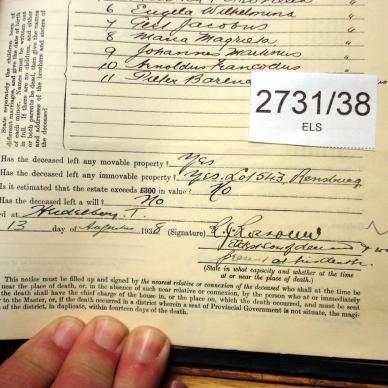 6 Engela Wilhelmina "
7 Jacobus "
8 Maria Magrieta "
9 Johannes Marthinus "
10 Arnoldus Francodus "
11 Pieter Barend
State separately the children born of
different marriages, and give the date of birth
of each minor. Names must be written out
in full. If there are no children, and either
or both parents be dead, then give the names
and addresses of the brothers and sisters of
the deceased
2731/38
ELS
Has the deceased left any movable property? Yes
Has the deceased left any immovable property? Yes. Lot 543, Rensburg
Is it estimated that the estate exceeds £300 in value? No
Has the deceased left a will? No
ed at Heidelberg. T.
13 day of Augustus 1938 (Signature)
present at his death.
(State in what capacity and whether at the time
at or near the place of death.)
This notice must be filled up and signed by the nearest relative or connexion of the deceased who shall at the time be
near the place of death, or, in the absence of such near relative or connexion, by the person who at or immediately
the death shall have the chief charge of the house in, or the place on, which the death occurred, and must be sent
to the Master, or, if the death occurred in a district wherein a seat of Provincial Government is not situate, the magi-
of the district, in duplicate, within fourteen days of the death.